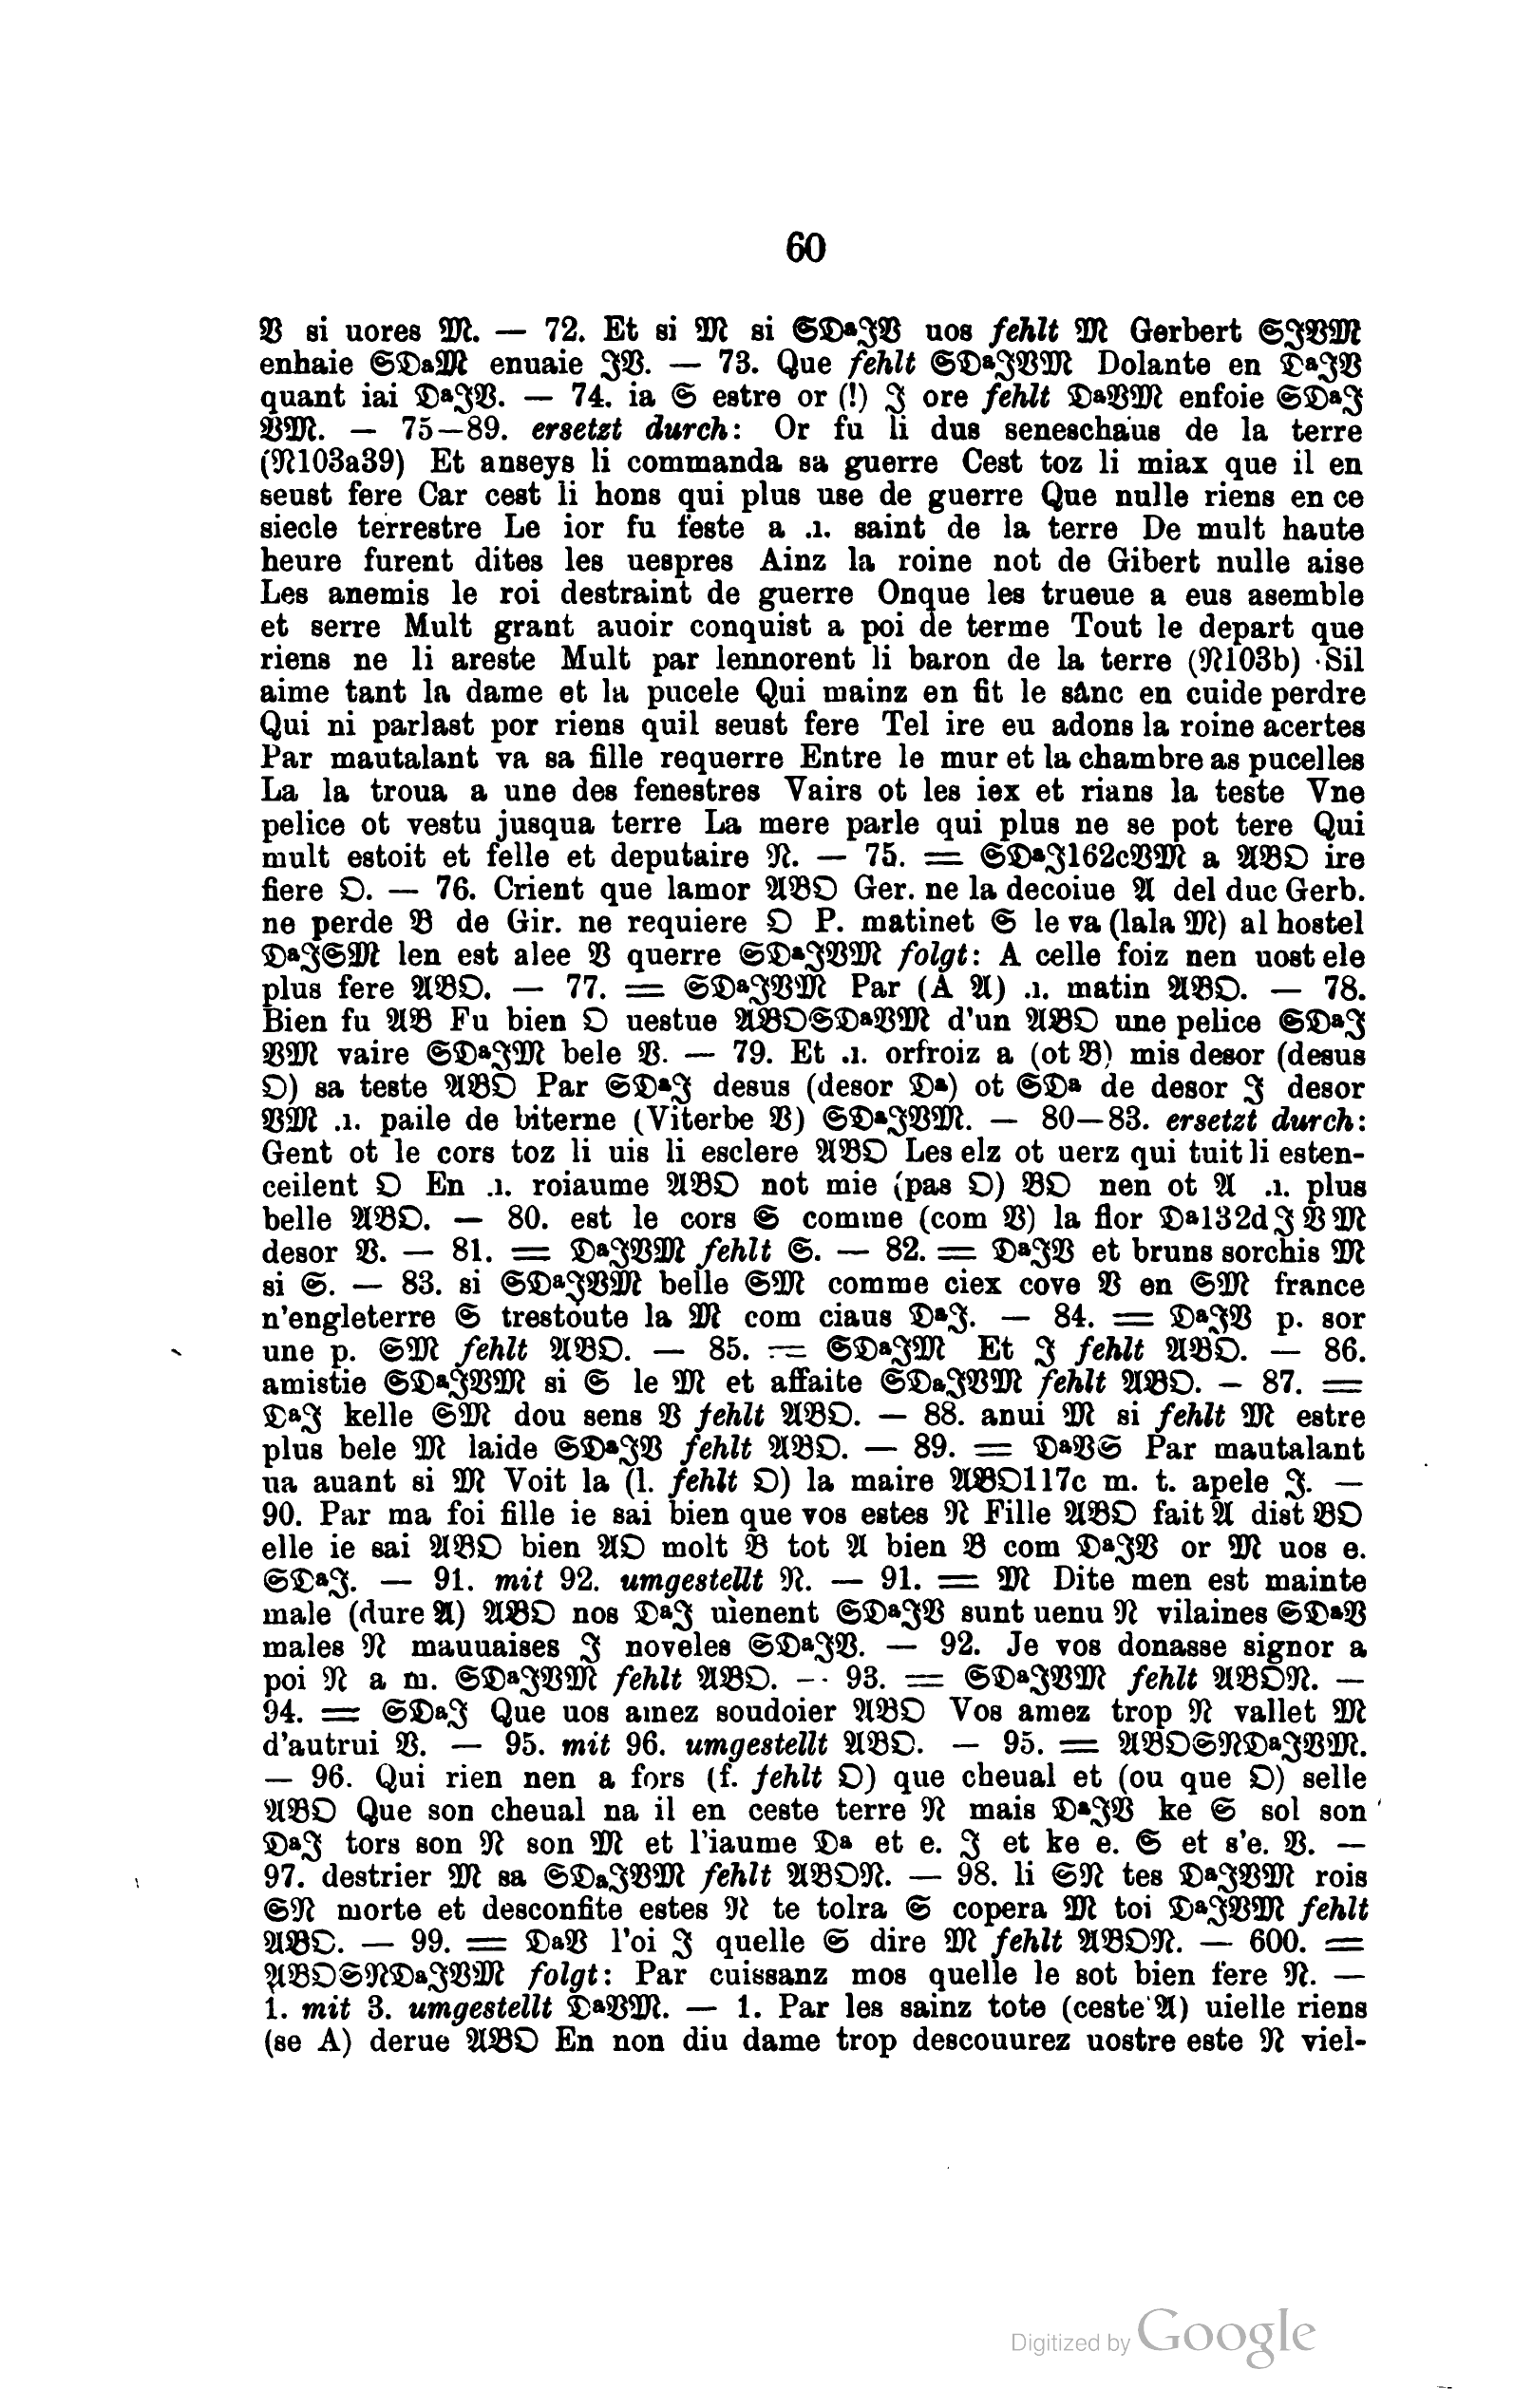 60
V si uores M. — 72. Et si M si SDaJV uos fehlt M Gerbert SJVM
enhaie SDaM enuaie JV. — 73. Que fehlt SDaJVM Dolante en DaJV
quant iai DaJV. — 74. ia S estre or (!) J ore fehlt DaVM enfoie SDaJ
VM. — 75—89. ersetzt durch: Or fu li dus seneschaus de la terre
(N103a39) Et anseys li commanda sa guerre Cest toz li miax que il en
seust fere Car cest li hons qui plus use de guerre Que nulle riens en ce
siecle terrestre Le ior fu feste a .ı. saint de la terre De mult haute
heure furent dites les uespres Ainz la roine not de Gibert nulle aise
Les anemis le roi destraint de guerre Onque les trueue a eus asemble
et serre Mult grant auoir conquist a poi de terme Tout le depart que
riens ne li areste Mult par lennorent li baron de la terre (N103b) Sil
aime tant la dame et la pucele Qui mainz en fit le sanc en cuide perdre
Qui ni parlast por riens quil seust fere Tel ire eu adons la roine acertes
Par mautalant va sa fille requerre Entre le mur et la chambre as pucelles
La la troua a une des fenestres Vairs ot les iex et rians la teste Vne
pelice ot vestu jusqua terre La mere parle qui plus ne se pot tere Qui
mult estoit et felle et deputaire N. — 75. = SDaJ162cVM a ABO ire
fiere O. — 76. Crient que lamor ABO Ger. ne la decoiue A del duc Gerb.
ne perde B de Gir. ne requiere O P. matinet S le va (lala M) al hostel
DaJSM len est alee V querre SDaJVM folgt: A celle foiz nen uost ele
plus fere ABO. — 77. = SDaJVM Par (A A) .ı. matin ABO. — 78.
Bien fu AB Fu bien O uestue ABOSDaVM d'un ABO une pelice SDaJ
VM vaire SDaJM bele V. — 79. Et .ı. orfroiz a (ot B) mis desor (desus
O) sa teste ABO Par SDaJ desus (desor Da) ot SDa de desor J desor
VM .ı. paile de biterne (Viterbe V) SDaJVM. — 80—83. ersetzt durch:
Gent ot le cors toz li uis li esclere ABO Les elz ot uerz qui tuit li esten-
ceilent O En .ı. roiaume ABO not mie (pas O) BO nen ot A .ı. plus
belle ABO. — 80. est le cors S comme (com V) la flor Da132dJVM
desor V. — 81. = DaJVM fehlt S. — 82. = DaJV et bruns sorchis M
si S. — 83. si SDaJVM belle SM comme ciex cove V en SM france
n'engleterre S trestoute la M com ciaus DaJ. — 84. = DaJV p. sor
une p. SM fehlt ABO. — 85. = SDaJM Et J fehlt ABO. — 86.
amistie SDaJVM si S le M et affaite SDaJVM fehlt ABO. — 87. =
DaJ kelle SM dou sens V fehlt ABO. — 88. anui M si fehlt M estre
plus bele M laide SDaJV fehlt ABO. — 89. = DaVS Par mautalant
ua auant si M Voit la (l. fehlt O) la maire ABO117c m. t. apele J. —
90. Par ma foi fille ie sai bien que vos estes N Fille ABO fait A dist BO
elle ie sai ABO bien AO molt B tot A bien B com DaJV or M uos e.
SDaJ. — 91. mit 92. umgestellt N. — 91. = M Dite men est mainte
male (dure A) ABO nos DaJ uienent SDaJV sunt uenu N vilaines SDaV
males N mauuaises J noveles SDaJV. — 92. Je vos donasse signor a
poi N a m. SDaJVM fehlt ABO. — 93. = SDaJVM fehlt ABON. —
94. = SDaJ Que uos amez soudoier ABO Vos amez trop N vallet M
d'autrui V. — 95. mit 96. umgestellt ABO. — 95. = ABOSNDaJVM.
— 96. Qui rien nen a fors (f. fehlt O) que cheual et (ou que O) selle
ABO Que son cheual na il en ceste terre N mais DaJV ke S sol son
DaJ tors son N son M et l'iaume Da et e. J et ke e. S et s'e. V. —
97. destrier M sa SDaJVM fehlt ABON. — 98. li SN tes DaJVM rois
SN morte et desconfite estes N te tolra S copera M toi DaJVM fehlt
ABO. — 99. = DaV l'oi J quelle S dire M fehlt ABON. — 600. =
ABOSNDaJVM folgt: Par cuissanz mos quelle le sot bien fere N. —
1. mit 3. umgestellt DaVM. — 1. Par les sainz tote (ceste A) uielle riens
(se A) derue ABO En non diu dame trop descouurez uostre este N viel-
Digitized by Google